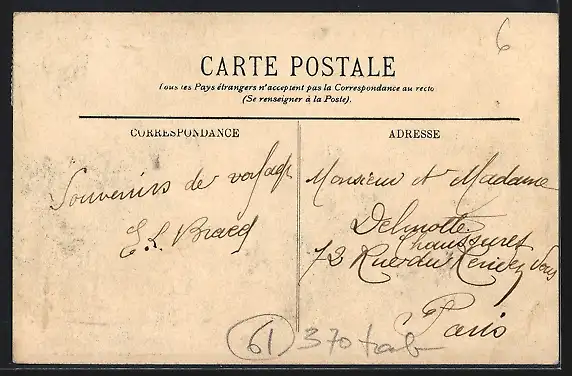 6
CARTE POSTALE
Tous les Pays étrangers n'acceptent pas la Correspondance au recto
(Se renseigner à la Poste).
CORRESPONDANCE
Souvenirs de voyage
E. L.
ADRESSE
Monsieur et Madame
Delmotte
Chaussures
73 Rue du Rendez Vous
Paris
61 370 tab